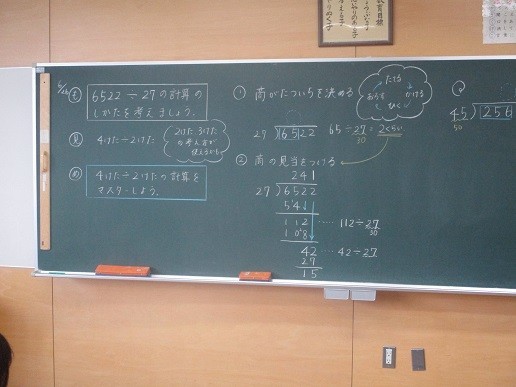 6522÷27の計算の
しかたを考えましょう。
見
4けた÷2けた
2けた 3けた
の考え方が
使えるかも
め
4けた÷2けたの計算を
マスターしよう。
① 商がたついちを決める
たてる
かける
ひく
おろす
27)6522
65÷27=2くらい
30
② 商の見当をつける
241
27)6522
54
112 …… 112÷27
30
108
42 …… 42÷27
27
15
45)256
50